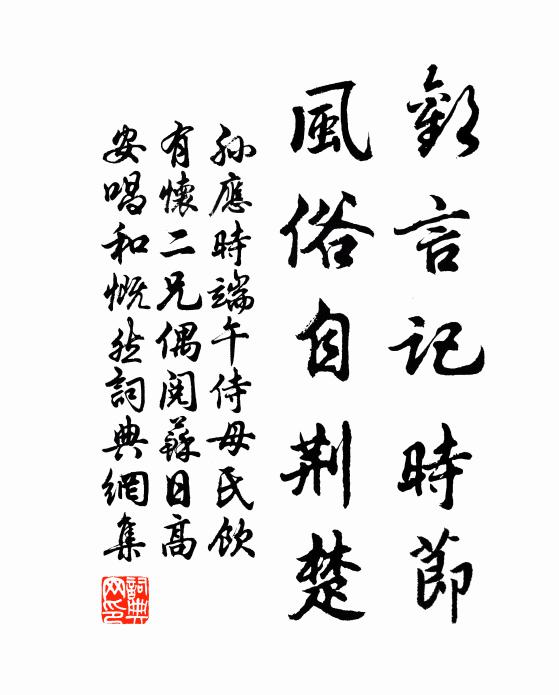 歡言記時節
風俗自荊楚
孫應時端午侍母氏飲
有懷二兄偶閱蘇日高
安唱和慨然詞典網集
詞典
网印